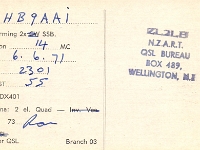 HB9AAI
rming 2x SSB.
on 14 MC
6.6.71
2301
ST 55
DX401
ne: 2 el. Quad — Inv. Vee
73 Ron
r QSL Branch 03
ZL2LB
N.Z.A.R.T.
QSL BUREAU
BOX 489,
WELLINGTON, N.Z